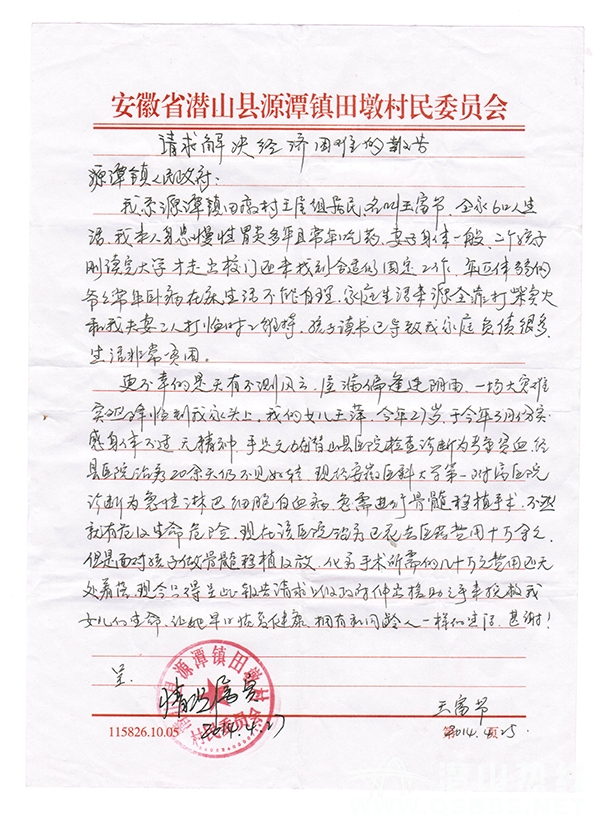 安徽省潜山县源潭镇田墩村民委员会
请求解决经济困难的报告
源潭镇人民政府：
我系源潭镇田墩村王屋组居民，名叫王富节，全家6口人生
活，我本人身患慢性胃炎多年且常年吃药，妻子身体一般，二个孩子
刚读完大学才走出校门还未找到合适的固定工作，年迈体弱的
爷爷常年卧病在床生活不能自理，家庭生活来源全靠打柴卖火
和我夫妻二人打临时工维持，孩子读书已导致我家庭负债很多，
生活非常贫困。
更不幸的是天有不测风云，屋漏偏逢连阴雨，一场大灾难
突然降临到我家头上，我的女儿王萍，今年27岁，于今年3月份突
感身体不适，无精神，手足无力在潜山县医院检查诊断为贫血，经
县医院治疗20余天仍不见好转，现经安徽医科大学第一附属医院
诊断为急性淋巴细胞白血病，急需进行骨髓移植手术，不然
就有危及生命危险，现在该医院治病已花去医药费用十万余元，
但是面对孩子做骨髓移植及放、化疗手术所需的几十万元费用还无
处着落，现今只得呈此报告请求上级政府伸出援助之手来挽救我
女儿的生命，让她早日恢复健康，拥有和同龄人一样的生活，甚谢！
呈
情况属实
源潭镇田墩村
村民委员会
2014.4.27
王富节
115826.10.05
第 页
2014.4.25